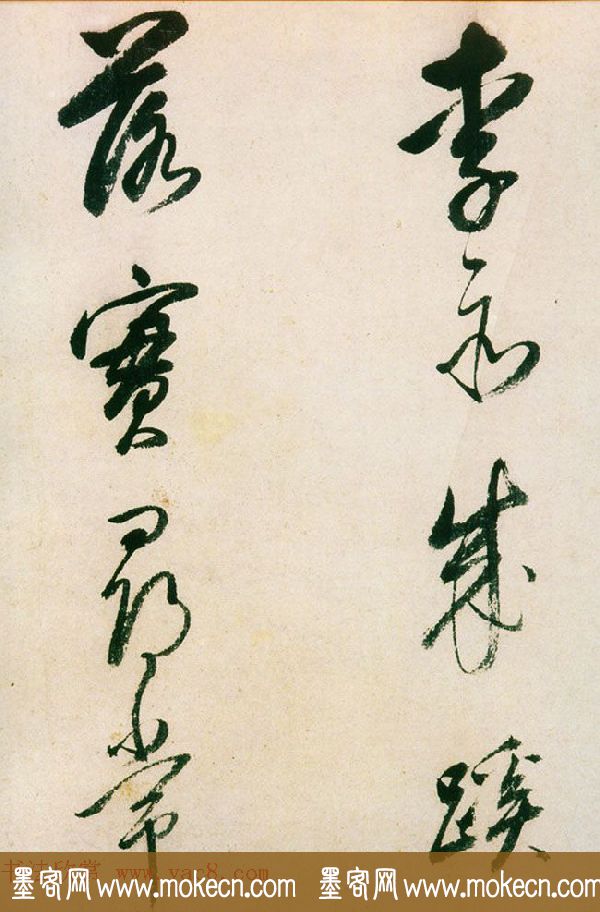 李永成蹊
落實尋常
书法欣赏 www.yac8.com
墨客网 www.mokecn.com 墨客网 www.mokecn.com